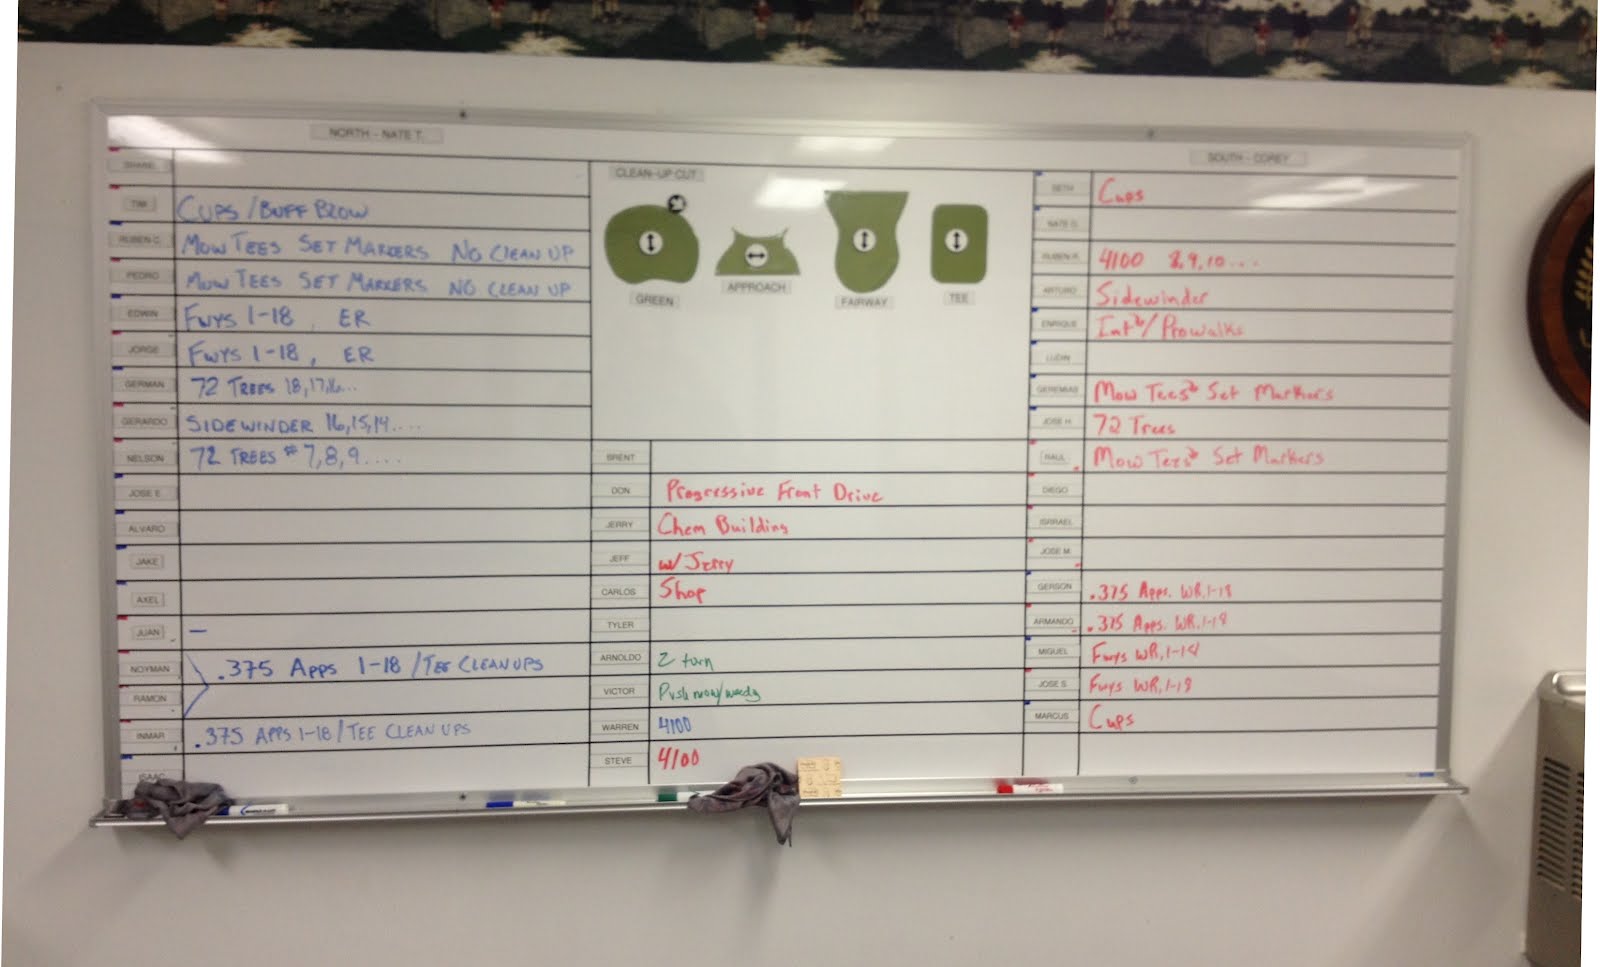 NORTH - NATE T.
TIM CUPS/BUFF BLOW
RUBEN C. MOW TEES SET MARKERS NO CLEAN UP
PEDRO MOW TEES SET MARKERS NO CLEAN UP
EDWIN FWYS 1-18, ER
JORGE FWYS 1-18, ER
GERMAN 72 TREES 18,17,16...
GERARDO SIDEWINDER 16,15,14....
NELSON 72 TREES #7,8,9....
JOSE E.
ALVARO
JAKE
AXEL
JUAN —
NOYMAN .375 APPS 1-18/TEE CLEANUPS
RAMON
INMAR .375 APPS 1-18/TEE CLEAN UPS
ISAAC
CLEAN-UP CUT
GREEN APPROACH FAIRWAY TEE
BRENT
DON Progressive Front Drive
JERRY Chem Building
JEFF w/ Jerry
CARLOS Shop
TYLER
ARNOLDO Z turn
VICTOR Push mow/weeds
WARREN 4100
STEVE 4100
SOUTH - COREY
SETH Cups
NATE G.
RUBEN R. 4100 8,9,10...
ARTURO Sidewinder
ENRIQUE Int's/Prowalks
LUDIN
GEREMIAS Mow Tees Set Markers
JOSE H. 72 Trees
RAUL Mow Tees Set Markers
DIEGO
ISRRAEL
JOSE M.
GERSON .375 Apps. WR,1-18
ARMANDO .375 Apps. WR,1-18
MIGUEL Fwys WR,1-18
JOSE S. Fwys WR,1-18
MARCUS Cups